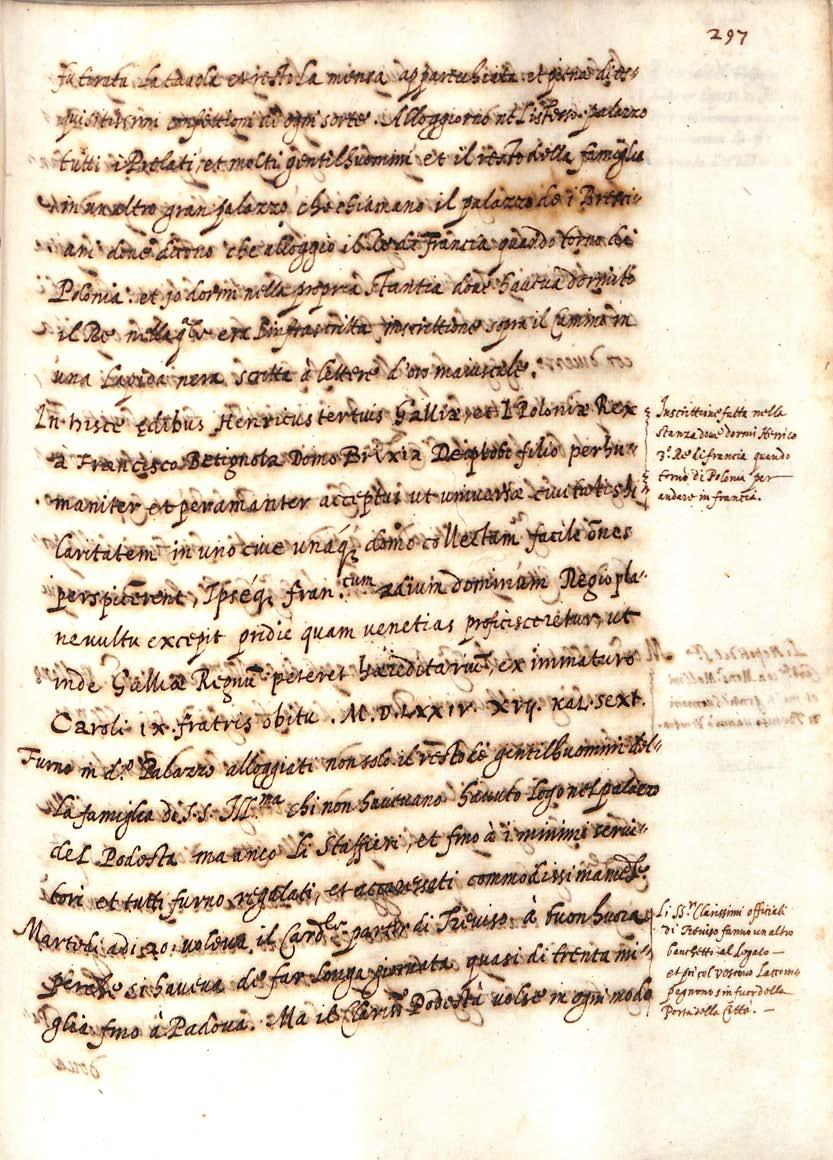 297
fu levata la tavola et restò la mensa apparechiata et piena di es-
quisitissimi confettioni di ogni sorte. Alloggiorno nel istesso palazzo
tutti i Prelati, et molti gentilhuomini et il resto della famiglia
in un altro gran palazzo che chiamano il palazzo de i Bressi-
ani dove dicono che alloggiò il Re di Francia quando tornò di
Polonia: et io dormi nella propria stantia dove haveva dormito
il Re nella qle era l'infrascritta inscrittione sopra il Cammino in
una Lapida nera scritta à lettere d'oro maiuscole.
In hisce ędibus Henricus tertius Galliæ, et Poloniæ Rex
à Francisco Betignola Domo Brixia Deiphobi filio perhu-
maniter et peramanter acceptus ut universæ civitatis hi
laritatem in uno cive unaq; domo collectam facile õnes
perspicerent, Ipseq; Fran.cum ædium dominum Regio pla-
ne vultu excepit pridie quam venetias proficisceretur, ut
inde Galliæ Regnũ peteret hæreditariũ, ex immaturo
Caroli ix. fratris obitu. M.D.LXXIV. XVII. KAL. SEXT.
Furno in d.o Palazzo alloggiati non solo il resto de gentilhuomini del-
la famiglia di S.S. Ill.ma chi non havevano havuto logo nel palazzo
del Podestà ma anco li staffieri, et fino à i minimi servi-
tori et tutti furno regalati, et accarezzati commodissimamente
Martedì adi 20: voleva il Card.le partir di Treviso à buon hora
perche si haveva de far longa giornata quasi di trenta mi-
glia fino à Padova. Ma il Clariss.mo Podestà volse in ogni modo
Inscrittione fatta nella
stanza dove dormi Henrico
3.o Re di francia quando
tornò di Polonia per
andare in francia.
Li SS.ri Clarissimi officiali
di Treviso fanno un altro
banchetto al Legato
et poi col vescovo l'accom-
pagnono sin fuor della
Porta della Città.